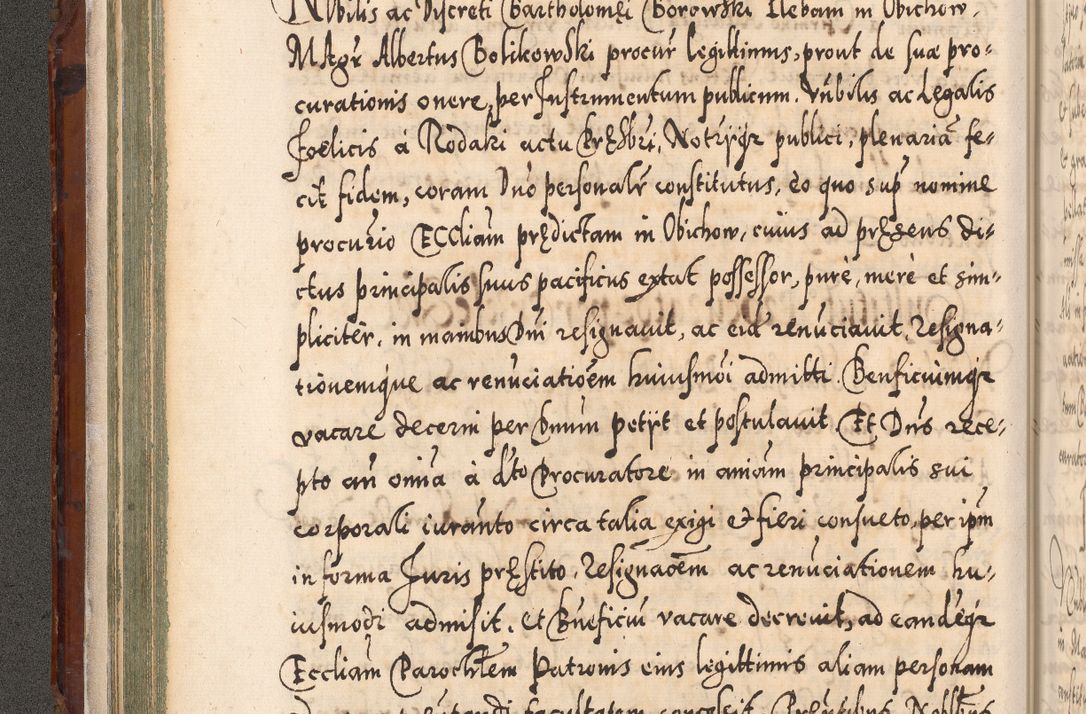 Nobilis ac Discreti Bartholomęi Borowski Plebani in Obichow,
MAgr Albertus Bolikowski procur legittimus, prout de suæ pro-
curationis onere, per Instrumentum publicum. Nobilis ac Legalis
Foelicis à Rodaki actu Pręsbri, Notrijqr publici, plenariā fe-
cit fidem, coram Dno personalr constitutus, eo quo sup nomine
procurio ECCliam prędictam in Obichow, cuius ad pręsens di-
ctus principalis suus pacificus extat possessor, purè, merè et sim-
pliciter, in manibus Dni resignavit, ac eid renuciavit, Resigna-
tionemque ac renuciatioem huiusmoi admitti. Benficiumqr
vacare decerni per Dnum petijt et postulavit. Et Dns rece-
pto an omia à dto Procuratore in aniam principalis sui
corporali iuranto circa talia exigi et fieri consueto, per ipm
in forma Juris pręstito, Resignaoem ac renuciationem hu-
iusmodi admisit, et Bneficiu vacare decrevit, ad eandeqr
Eccliam Parochlem Patronis eius legittimis aliam personam
facultatem concessit. Pręntibus Nobilbus